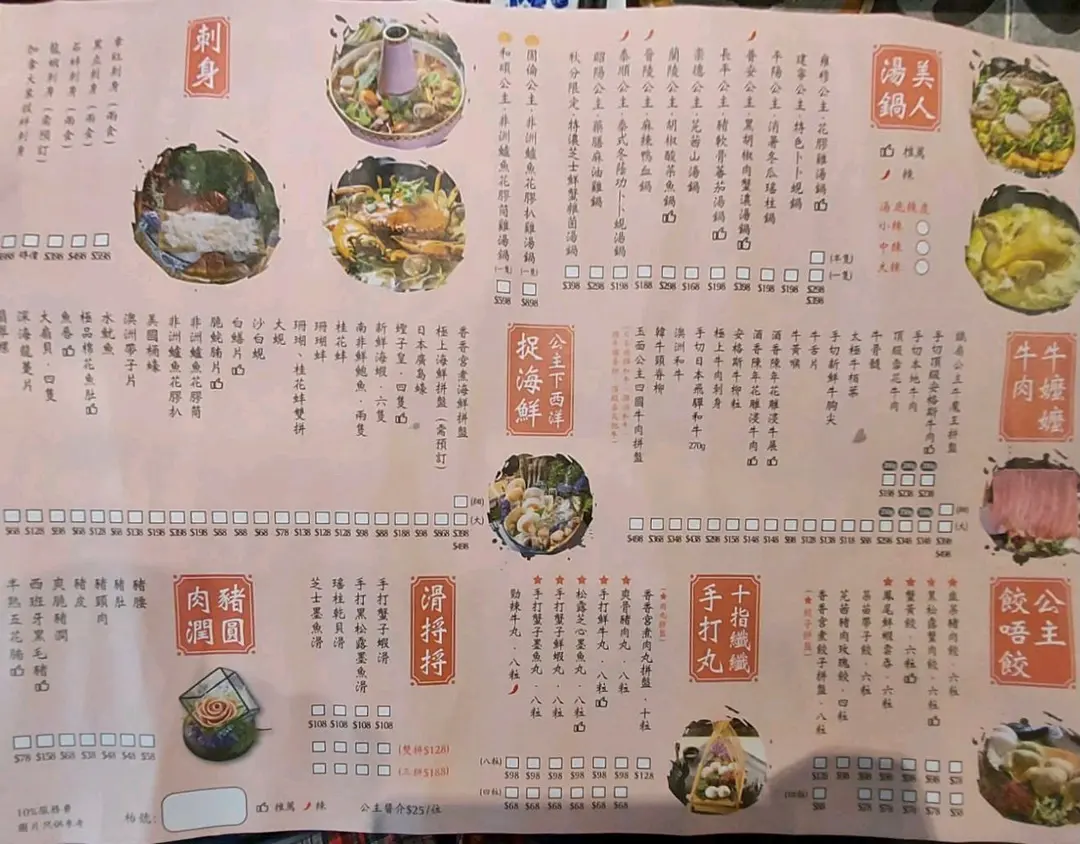 美人
湯鍋
推薦
辣
湯底辣度
小辣
中辣
大辣
雍穆公主．花膠雞湯鍋
(半隻)
(一隻)
$298
$398
建寧公主．特色卜卜蜆鍋
$198
平陽公主．消暑冬瓜瑤柱鍋
$198
普安公主．黑胡椒肉蟹濃湯鍋
$398
長平公主．豬軟骨蕃茄湯鍋
$198
崇德公主．芫茜山湯鍋
$168
蘭陵公主．胡椒酸菜魚鍋
$298
晉陵公主．麻辣鴨血鍋
$188
泰順公主．泰式冬蔭功卜卜蜆湯鍋
$198
昭陽公主．藥膳麻油雞鍋
$298
秋分限定．特濃芝士鮮蟹雜菌湯鍋
$398
固倫公主．非洲鱸魚花膠扒雞湯鍋
(一隻)
$898
和頌公主．非洲鱸魚花膠筒雞湯鍋
(一隻)
$598
刺身
章紅刺身（兩食）
$398
黑立刺身（兩食）
$498
石蚌刺身（兩食）
$398
龍蝦刺身（需預訂）
時價
加拿大象拔蚌刺身
牛嬤嬤
牛肉
鐵扇公主牛魔王拼盤
手切頂級安格斯牛肉
手切本地牛肉
頂級雪花牛肉
牛骨髓
太極牛栢葉
手切新鮮牛胸尖
牛舌片
牛黃喉
酒香陳年花雕浸牛展
酒香陳年花雕浸牛肉
安格斯牛柳粒
極上牛肉刺身
手切日本飛驒和牛 270g
澳洲和牛
韓牛頸脊柳
玉面公主四國牛肉拼盤
公主下西洋
捉海鮮
香香宮煮海鮮拼盤
極上海鮮拼盤（需預訂）
日本廣島蠔
螳子皇．四隻
新鮮海蝦．六隻
南非鮮鮑魚．兩隻
桂花蚌
珊瑚蚌
珊瑚、桂花蚌雙拼
大蜆
沙白蜆
白鱔片
脆鯇腩片
非洲鱸魚花膠筒
非洲鱸魚花膠扒
美國桶蠔
澳洲帶子片
水魷魚
極品棉花魚肚
魚卷
大扇貝．四隻
深海龍躉片
公主
餃唔餃
韭菜豬肉餃．六粒
黑松露蟹肉餃．六粒
蟹黃餃．六粒
鳳尾鮮蝦雲吞．六粒
菜苗帶子餃．六粒
芫茜豬肉玫瑰餃．四粒
香香宮煮餃子拼盤．八粒
(★餃子拼盤)
十指纖纖
手打丸
(★肉丸拼盤)
香香宮煮肉丸拼盤．十粒
爽骨豬肉丸．八粒
手打鮮牛丸．八粒
松露芝心墨魚丸．八粒
手打蟹子鮮蝦丸．八粒
手打蟹子墨魚丸．八粒
勁辣牛丸．八粒
(八粒) $98 $98 $98 $98 $98 $98 $128
(四粒) $68 $68 $68 $68 $68 $68
滑捋捋
手打蟹子蝦滑
手打黑松露墨魚滑
瑤柱乾貝滑
芝士墨魚滑
$108 $108 $108 $108
(雙拼$128)
(三拼$188)
豬圓
肉潤
豬腰
豬肚
豬頸肉
豬皮
爽脆豬潤
西班牙黑毛豬
半熟五花腩
$78 $158 $68 $38 $48 $48 $58
10%服務費
圖片只供參考
枱號：
推薦
辣
公主醬介$25/位